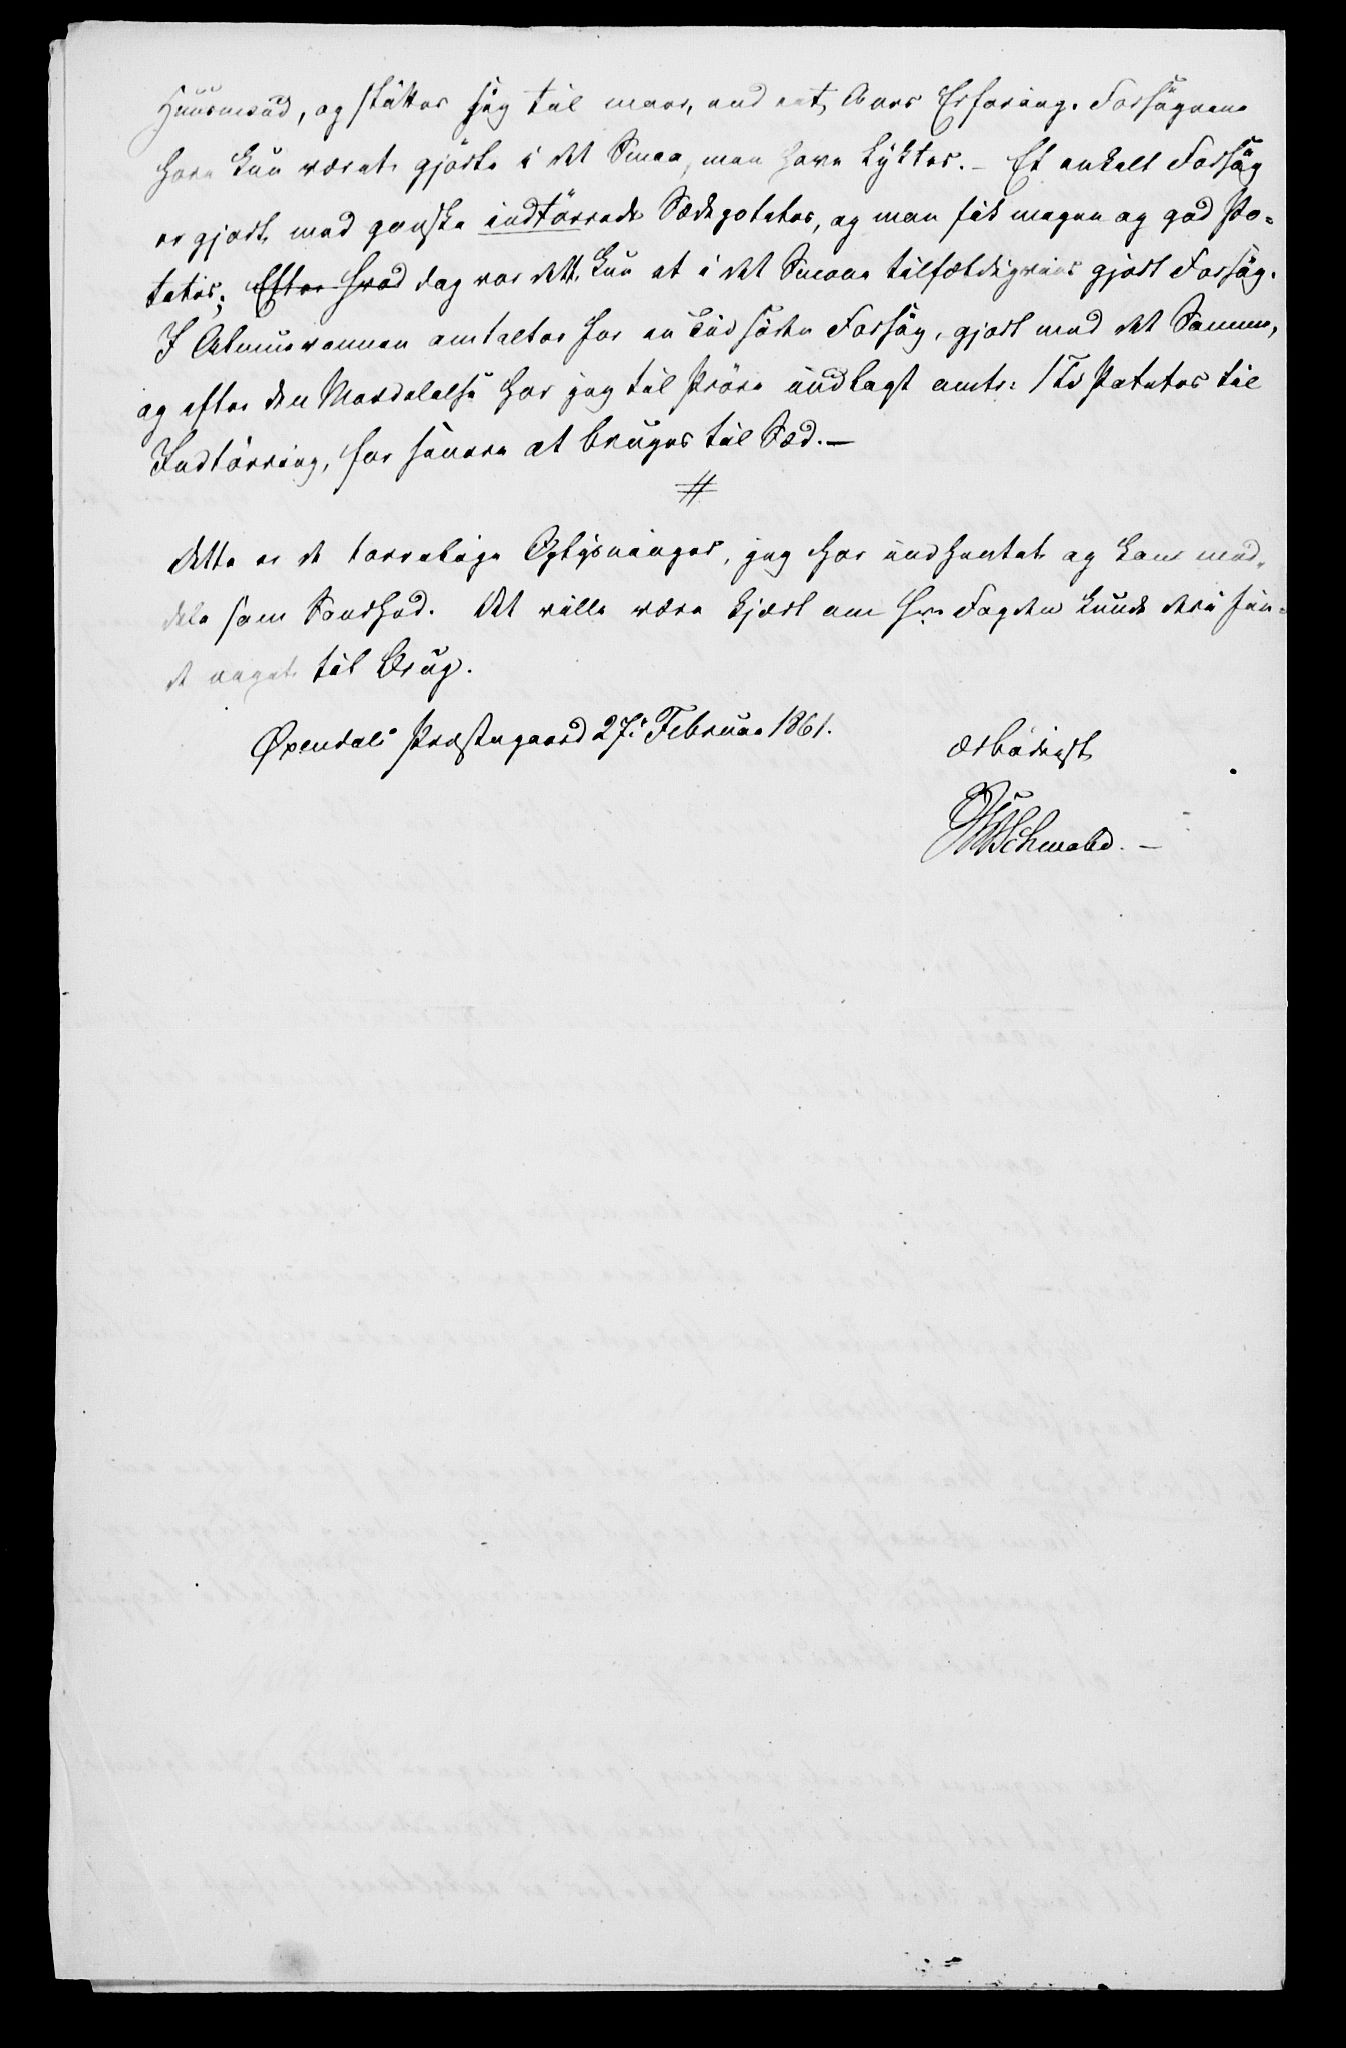 Huusmænd, og støtter sig til meer, end eet Aars Erfaring. Forsøgene
have kun været gjorte i det Smaa, men have lyktes. – Et enkelt Forsøg
er gjort med ganske indtørrede Sædepotetes, og man fik megen og god Po-
tetes; Efter hvad dog var dette kun et i det Smaae tilfældigviis gjort Forsøg.
I Almuevennen omtaltes for en Tid siden Forsøg, gjort med det Samme,
og efter den Meddelelse har jeg til Prøve udlagt omtr: 1 Td Potetes til
Indtørring, for senere at bruges til Sæd. –
#
Dette er de tarvelige Oplysninger, jeg har indhentet og kan med-
dele som Svar. Det vilde være kjært om Hr. Fogden kunde deri fin-
de noget til Brug.
Øxendals Præstegaard 27: Februar 1861.
ærbødigst
Schwabe. –